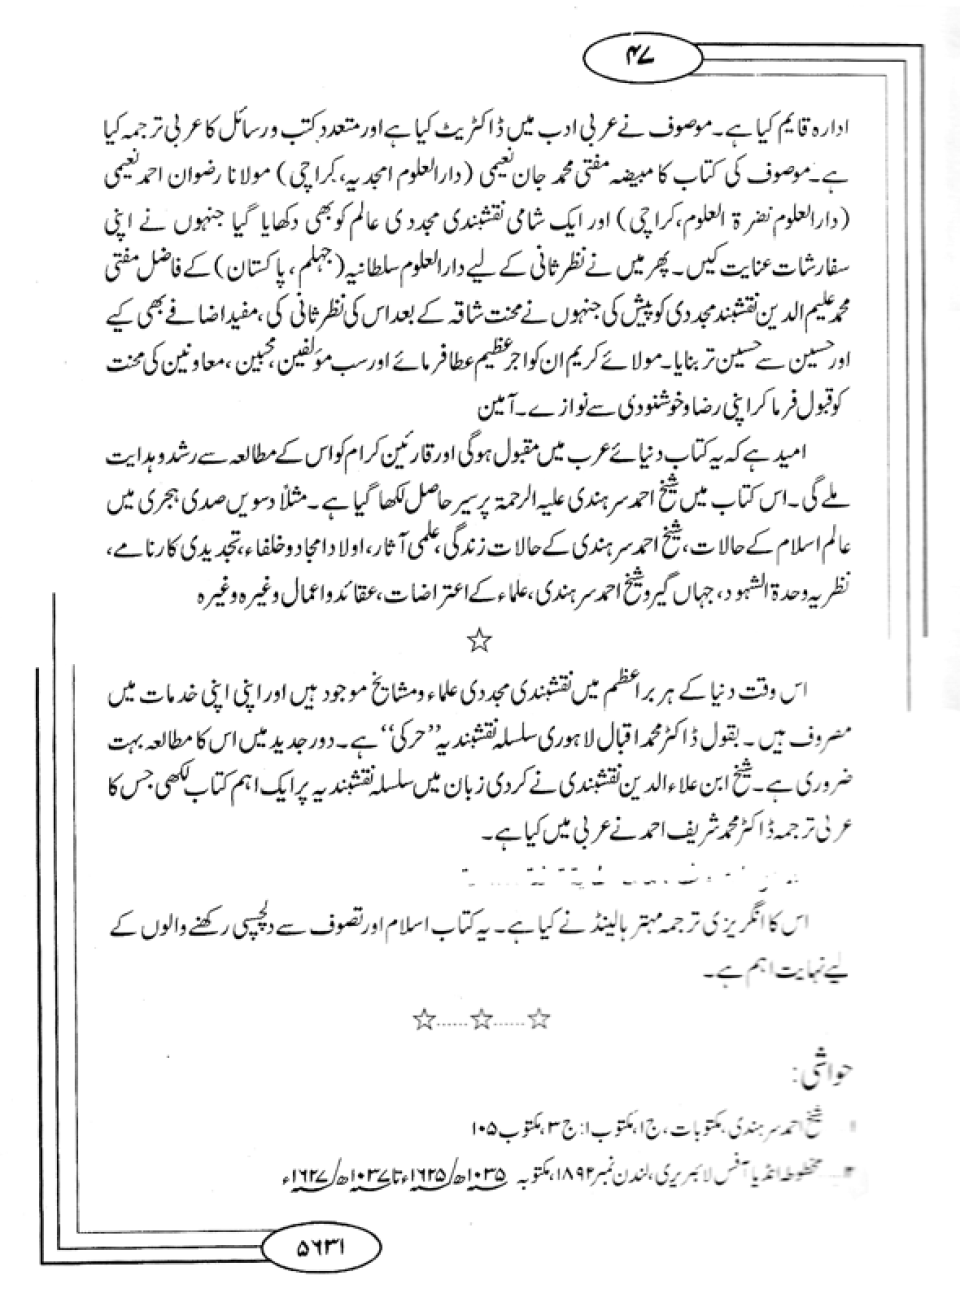 ۴۷
ادارہ قایم کیا ہے۔ موصوف نے عربی ادب میں ڈاکٹریٹ کیا ہے اور متعدد کتب و رسائل کا عربی ترجمہ کیا
ہے۔ موصوف کی کتاب کا مبیضہ مفتی محمد جان نعیمی (دارالعلوم امجدیہ، کراچی) مولانا رضوان احمد نعیمی
(دارالعلوم نضرۃ العلوم، کراچی) اور ایک شامی نقشبندی مجددی عالم کو بھی دکھایا گیا جنہوں نے اپنی
سفارشات عنایت کیں۔ پھر میں نے نظر ثانی کے لیے دارالعلوم سلطانیہ (جہلم، پاکستان) کے فاضل مفتی
محمد علیم الدین نقشبند مجددی کو پیش کی جنہوں نے محنت شاقہ کے بعد اس کی نظر ثانی کی، مفید اضافے بھی کیے
اور حسین سے حسین تر بنایا۔ مولائے کریم ان کو اجر عظیم عطا فرمائے اور سب مؤلفین، محبین، معاونین کی محنت
کو قبول فرما کر اپنی رضا و خوشنودی سے نوازے۔ آمین
امید ہے کہ یہ کتاب دنیائے عرب میں مقبول ہوگی اور قارئین کرام کو اس کے مطالعہ سے رشد و ہدایت
ملے گی۔ اس کتاب میں شیخ احمد سرہندی علیہ الرحمۃ پر سیر حاصل لکھا گیا ہے۔ مثلاً دسویں صدی ہجری میں
عالم اسلام کے حالات، شیخ احمد سرہندی کے حالات زندگی، علمی آثار، اولاد امجاد و خلفاء، تجدیدی کارنامے،
نظریہ وحدۃ الشہود، جہاں گیر و شیخ احمد سرہندی، علماء کے اعتراضات، عقائد و اعمال وغیرہ وغیرہ
☆
اس وقت دنیا کے ہر براعظم میں نقشبندی مجددی علماء و مشایخ موجود ہیں اور اپنی اپنی خدمات میں
مصروف ہیں۔ بقول ڈاکٹر محمد اقبال لاہوری سلسلہ نقشبندیہ ”حرکی“ ہے۔ دور جدید میں اس کا مطالعہ بہت
ضروری ہے۔ شیخ ابن علاء الدین نقشبندی نے کردی زبان میں سلسلہ نقشبندیہ پر ایک اہم کتاب لکھی جس کا
عربی ترجمہ ڈاکٹر محمد شریف احمد نے عربی میں کیا ہے۔
اس کا انگریزی ترجمہ مہتر ہالینڈ نے کیا ہے۔ یہ کتاب اسلام اور تصوف سے دلچسپی رکھنے والوں کے
لیے نہایت اہم ہے۔
☆......☆......☆
حواشی:
۱ شیخ احمد سرہندی، مکتوبات، ج ۱، مکتوب ۱: ج ۳، مکتوب ۱۰۵
۲... مخطوطہ انڈیا آفس لائبریری، لندن نمبر ۱۸۹۲، مکتوبہ ۱۰۳۵ھ/۱۶۲۵ء تا ۱۰۳۷ھ/۱۶۲۷ء
۵۶۳۱